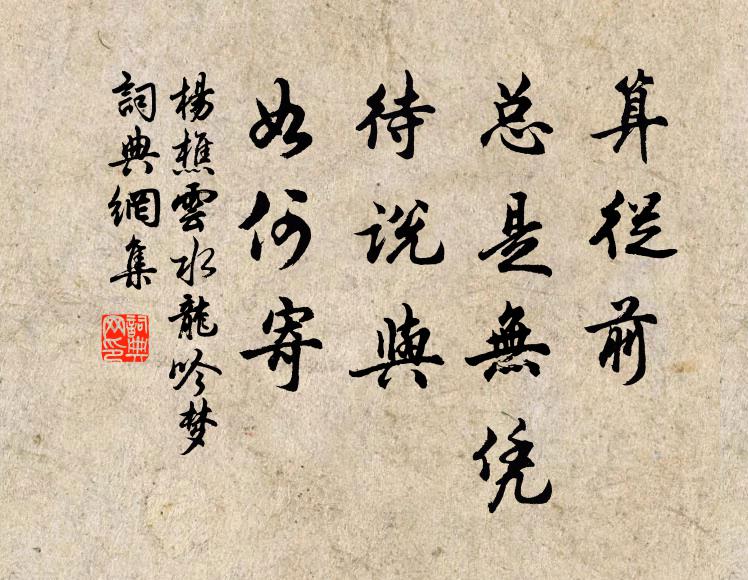 算從前
总是無凭
待說與
如何寄
楊樵雲水龍吟梦
詞典網集
詞典网印